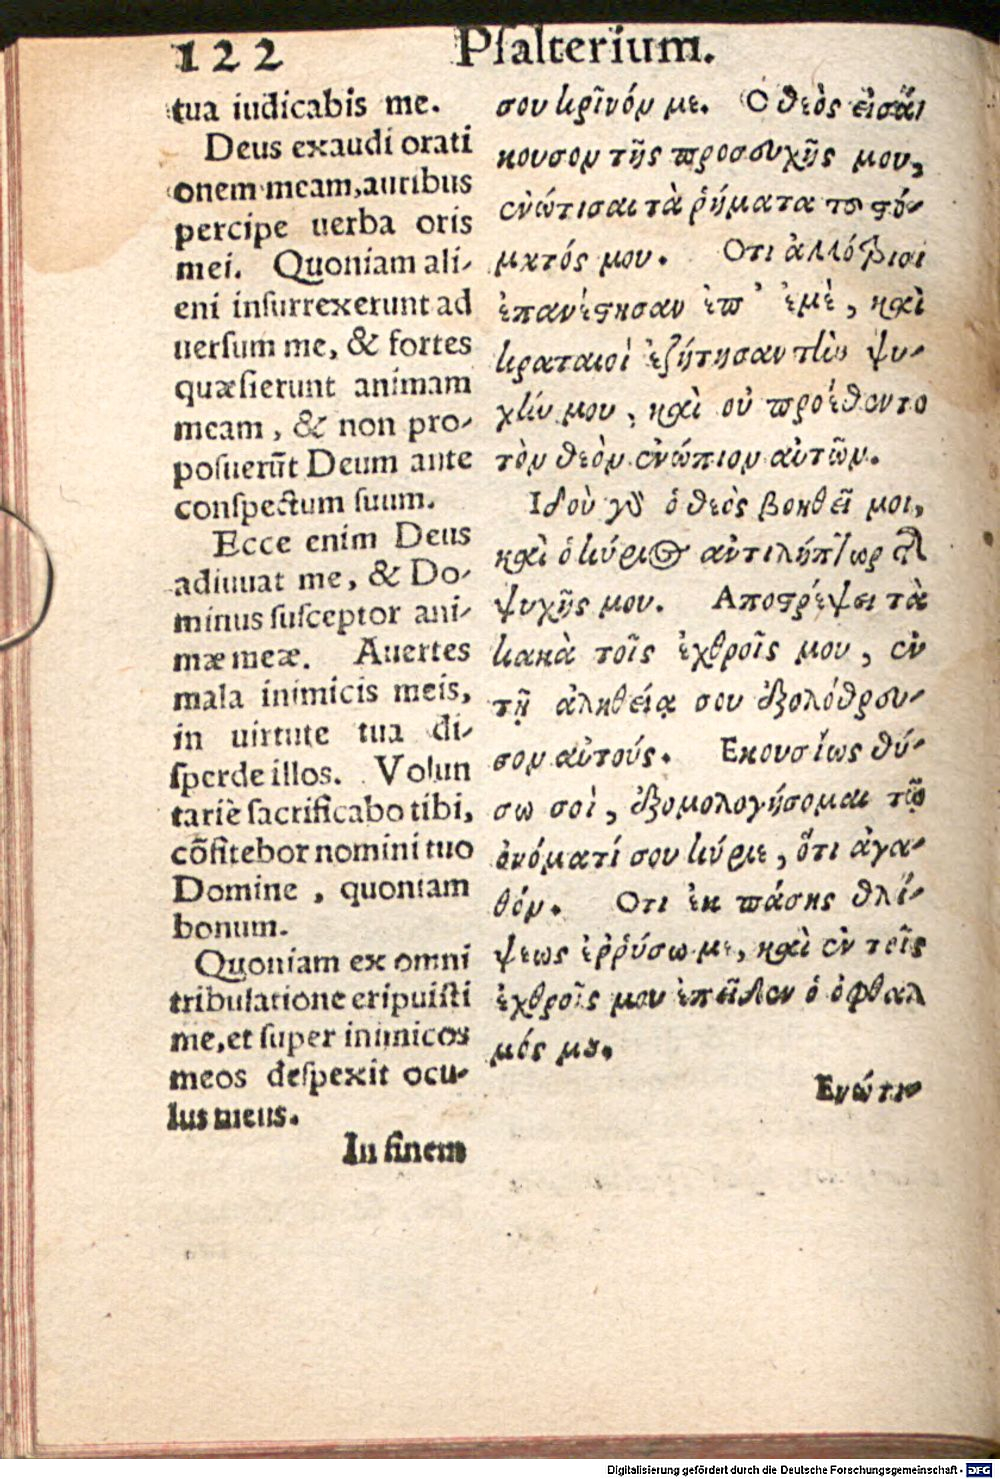 122 Psalterium.
tua iudicabis me.
Deus exaudi orati
onem meam, auribus
percipe uerba oris
mei. Quoniam ali-
eni insurrexerunt ad
uersum me, & fortes
quæsierunt animam
meam, & non pro-
posuerūt Deum ante
conspectum suum.
Ecce enim Deus
adiuuat me, & Do-
minus susceptor ani-
mæ meæ. Auertes
mala inimicis meis,
in uirtute tua di-
sperde illos. Volun
tariè sacrificabo tibi,
cōfitebor nomini tuo
Domine, quoniam
bonum.
Quoniam ex omni
tribulatione eripuisti
me, et super inimicos
meos despexit ocu-
lus meus.
In finem
σου κρῖνόν με. Ο θεὸς εἰσά
κουσον τῆς προσευχῆς μου,
ἐνώτισαι τὰ ῥήματα τοῦ στό-
ματός μου. Οτι ἀλλότριοι
ἐπανέστησαν ἐπ' ἐμὲ, καὶ
κραταιοὶ ἐζήτησαν τὴν ψυ-
χήν μου, καὶ οὐ προέθεντο
τὸν θεὸν ἐνώπιον αὐτῶν.
Ιδοὺ γὰρ ὁ θεὸς βοηθεῖ μοι,
καὶ ὁ κύριος ἀντιλήπτωρ τῆς
ψυχῆς μου. Αποστρέψει τὰ
κακὰ τοῖς ἐχθροῖς μου, ἐν
τῇ ἀληθείᾳ σου ἐξολόθρευ-
σον αὐτούς. Εκουσίως θύ-
σω σοὶ, ἐξομολογήσομαι τῷ
ὀνόματί σου κύριε, ὅτι ἀγα-
θόν. Οτι ἐκ πάσης θλί-
ψεως ἐῤῥύσω με, καὶ ἐν τοῖς
ἐχθροῖς μου ἐπεῖδεν ὁ ὀφθαλ
μός μου.
Ενώτι
Digitalisierung gefördert durch die Deutsche Forschungsgemeinschaft - DFG